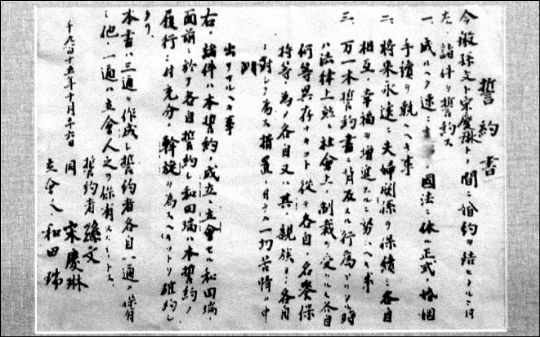 誓約書
今般孫文ト宋慶琳トノ間ニ婚約ヲ結ヒタルニ付
左ノ諸件ヲ誓約ス
一、成ルヘク速ニ支那國法ニ依ル正式ノ婚姻
手續ヲ執ルヘキ事
二、將来永遠ニ夫婦関係ヲ保續シ各自
相互ノ幸福ヲ増進スルニ努ムヘキ事
三、万一本誓約書ニ背反スル行為アリタル時
ハ法律上並ニ社會上ノ制裁ヲ受クルモ各自
何等異存ナキコト従テ各自ノ名譽保
持等ノ為ノ各自又ハ其ノ親族ヨリ各自
ニ對シテ為ス措置ニ付テハ一切苦情ヲ申
出テサルヘキ事
右ノ諸件ハ本誓約ノ成立ニ立會セル和田瑞ノ
面前ニ於テ各自誓約シ和田瑞ハ本誓約ノ
履行ニ付充分ノ斡旋ヲ為スヘキコトヲ確約シ
タリ
本書ハ三通ヲ作成シ誓約者各自ハ一通ヲ保有
シ他ノ一通ハ立會人之ヲ保有スルモノトス
千九百十五年十月廿六日
誓約者 孫文
同 宋慶琳
立會人 和田瑞